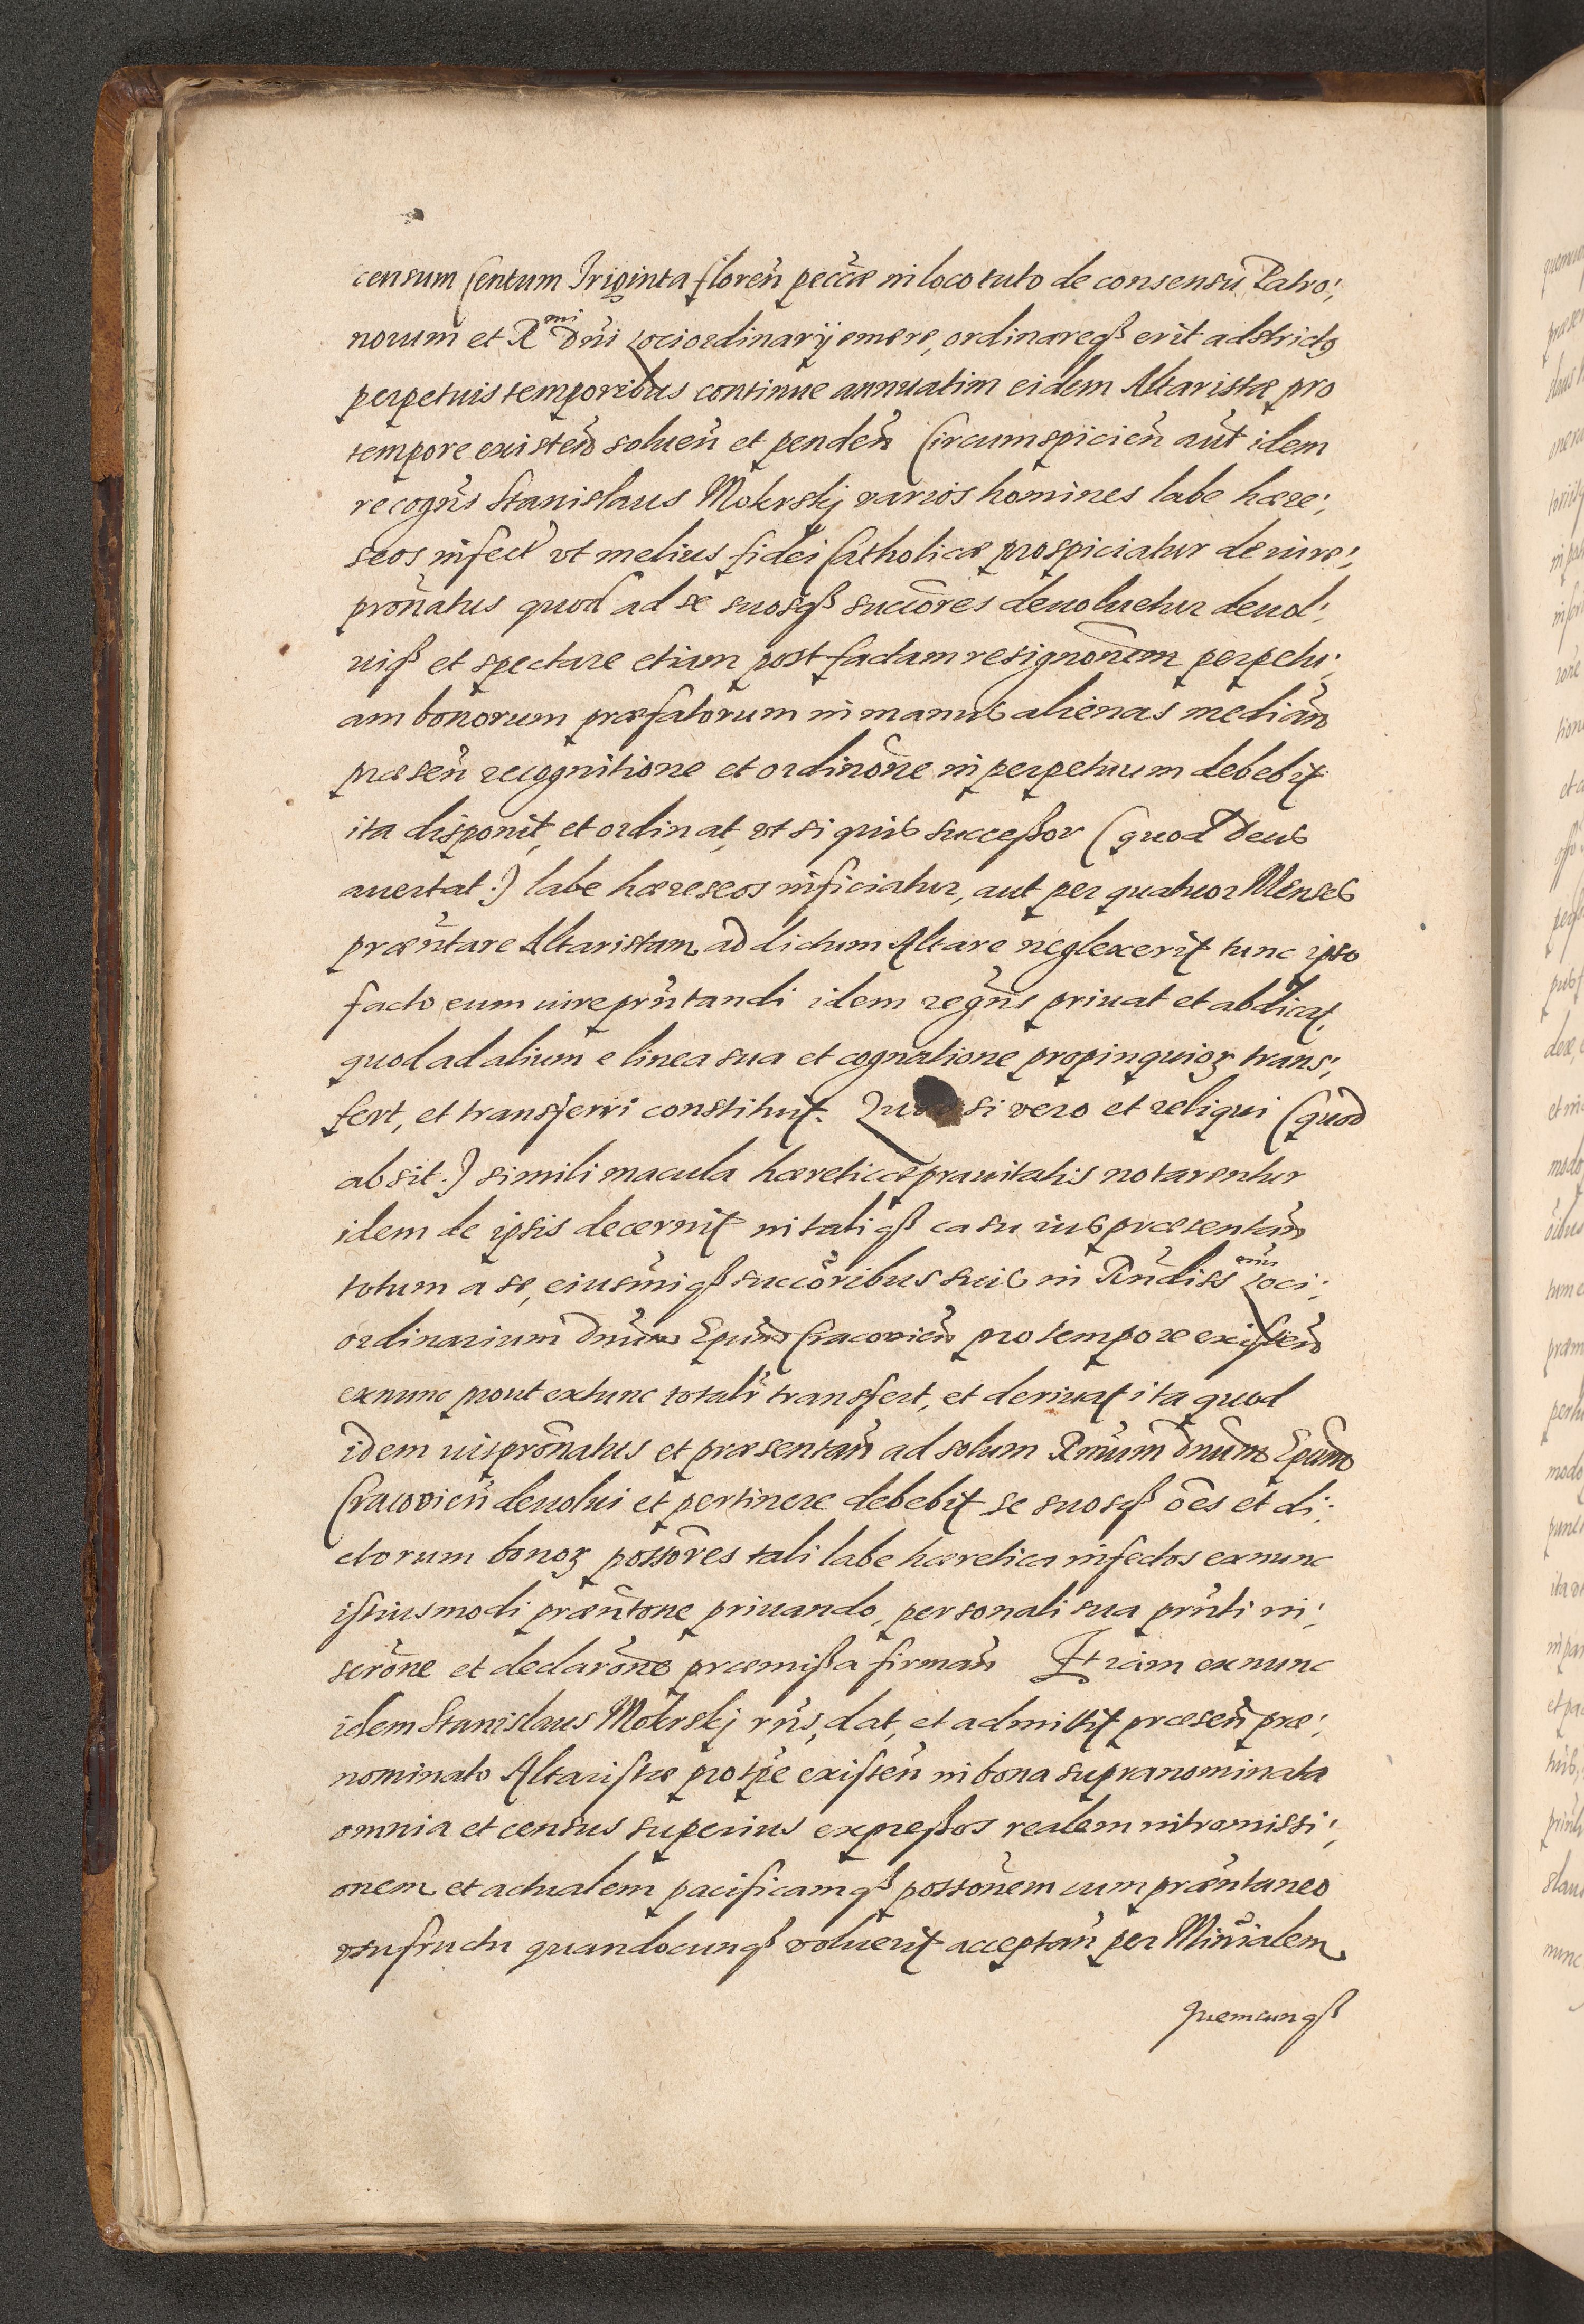 censum Centum Triginta floreñ pecc̃æ in loco tuto de consensu Patro:,
norum et R^mi Dñi Lociordinarij emere, ordinareqꝫ erit adstrictꝰ
perpetuis temporibus continue annuatim eidem Altaristæ pro
tempore existeñ solueñ et pendeñ Circumspicieñ aũt idem
recogñs Stanislaus Mokrskj varios homines labe hære:,
seos infect̃ vt melius fidei Catholicæ prospiciatur de iure:,
pron̄atus quod ad se suosqꝫ succ̃ores deuoluetur deuol:,
uiqꝫ et spectare etiam post factam resignõnem perpetu:,
am bonorum præfatorum in manus alienas median̄
præsen̄ recognitione et ordinõne in perpetuum debebit
ita disponit, et ordinat, vt si quis successor (quod Deus
auertat:) labe hæreseos inficiatur, aut per quatuor Menses
præñtare Altaristam ad dictum Altare neglexerit tunc ipso
facto eum iure prñtandi idem regñs priuat et abdicat,
quod ad alium e linea sua et cognatione propinquioꝝ trans:,
fert, et transferri constituit. Quod si vero et reliqui (quod
absit:) simili macula hæreticæ prauitatis notarentur
idem de ipsis decernit in taliqꝫ casu ius præsentan̄
totum a se, eiusm̃iqꝫ succ̃oribus suis in Rñdiss^mũ Loci:,
ordinarium Dñum Ep̃um Cracovien̄ pro tempore existen̄
exnunc prout extunc totalr̃ transfert, et deriuat ita quod
idem iuspron̄atus et præsentan̄ ad solum Rm̃um Dñum Ep̃um
Cracovien̄ deuolui et pertinere debebit se suosqꝫ oẽs et di:,
ctorum bonoꝝ possõres tali labe hæretica infectos exnunc
istiusmodi præñtõne priuando, personali sua prñti in:,
scrõne et declarõne præmissa firman̄ Etiam exnunc
idem Stanislaus Mokrskj rñs, dat, et admittit præsen̄ præ:,
nominato Altaristæ pro tp̃e existen̄ in bona supranominata
omnia et census superius expressos realem intromissi:,
onem et actualem pacificamqꝫ possõnem cum præñtaneo
vsufructu quandocunqꝫ voluerit acceptan̄ per Ministerialem
quemcunqꝫ